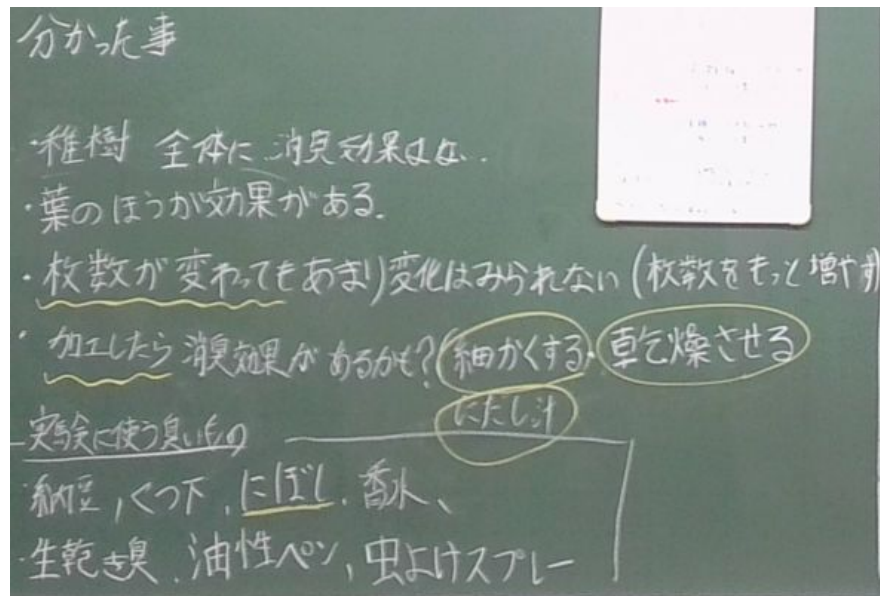 分かった事
・稚樹 全体に消臭効果はない.
・葉のほうが効果がある.
・枚数が変わってもあまり変化はみられない(枚数をもっと増やす)
・加工したら消臭効果があるかも?(細かくする・乾燥させる
にだし汁
実験に使う臭いもの
納豆,くつ下,にぼし,香水、
生乾き臭,油性ペン,虫よけスプレー